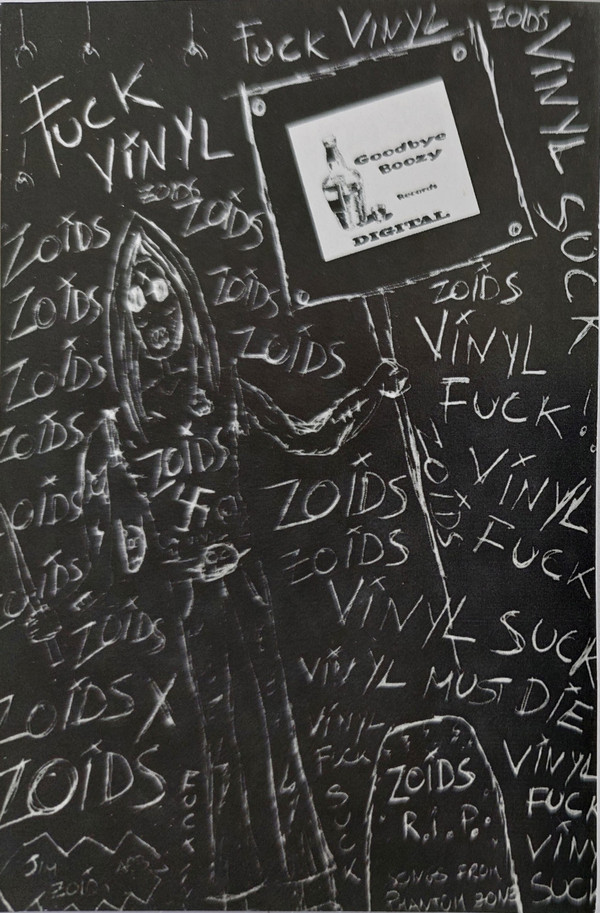 FUCK VINYL
ZOIDS
VINYL SUCK
FUCK
VINYL
Goodbye
Boozy
Records
DIGITAL
ZOIDS
ZOIDS
ZOIDS
ZOIDS
ZOIDS
ZOIDS
ZOIDS
ZOIDS
ZOIDS
VINYL
FUCK!
ZOIDS
ZOIDS
ZOIDS
ZOIDS
VINYL
FUCK
ZOIDS
ZOIDS
ZOIDS
VINYL SUCK
ZOIDS
VINYL MUST DIE
ZOIDS X
VINYL
FUCK
SUCK
ZOIDS
ZOIDS
R.I.P.
SONGS FROM
PHANTOM BONE
VINYL
FUCK
VINYL
SUCK
FUCK
JIM
ZOIDS